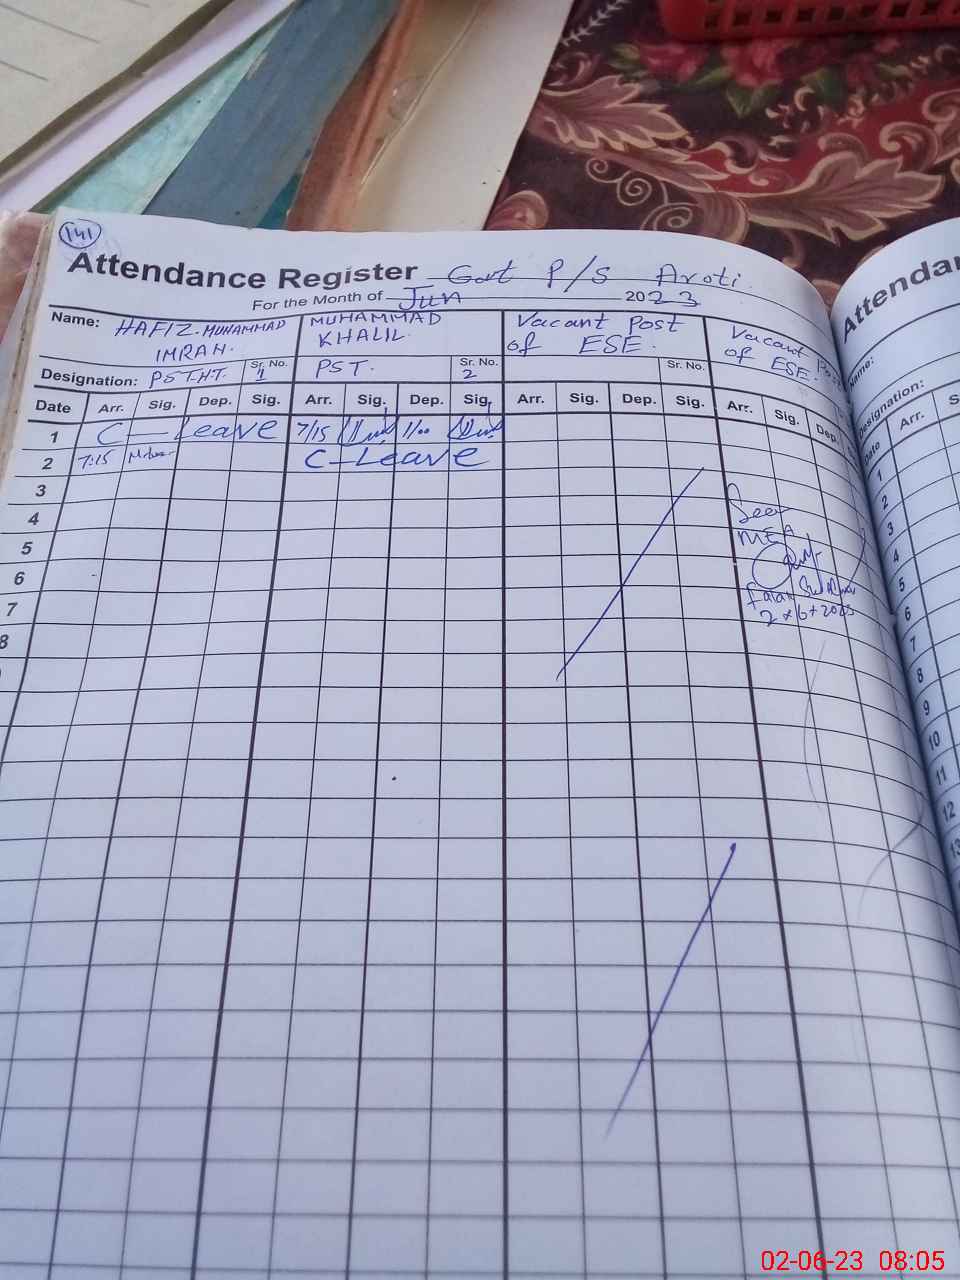 141
Attendance Register Govt P/S Aroti.
For the Month of Jun 2023
Name: HAFIZ. MUHAMMAD IMRAN. MUHAMMAD KHALIL. Vacant Post of ESE. Vacant Post of ESE.
Designation: PST.HT. Sr. No. 1 PST. Sr. No. 2 Sr. No.
Date Arr. Sig. Dep. Sig. Arr. Sig. Dep. Sig. Arr. Sig. Dep. Sig. Arr. Sig. Dep.
1 C-Leave 7/15 1/00
2 7:15 C-Leave
3
4
5
6
7
8
Seen
MEA
2x6+2023
Attendan
Name:
Designation:
Date Arr. S
1
2
3
4
5
6
7
8
9
10
11
12
13
02-06-23 08:05